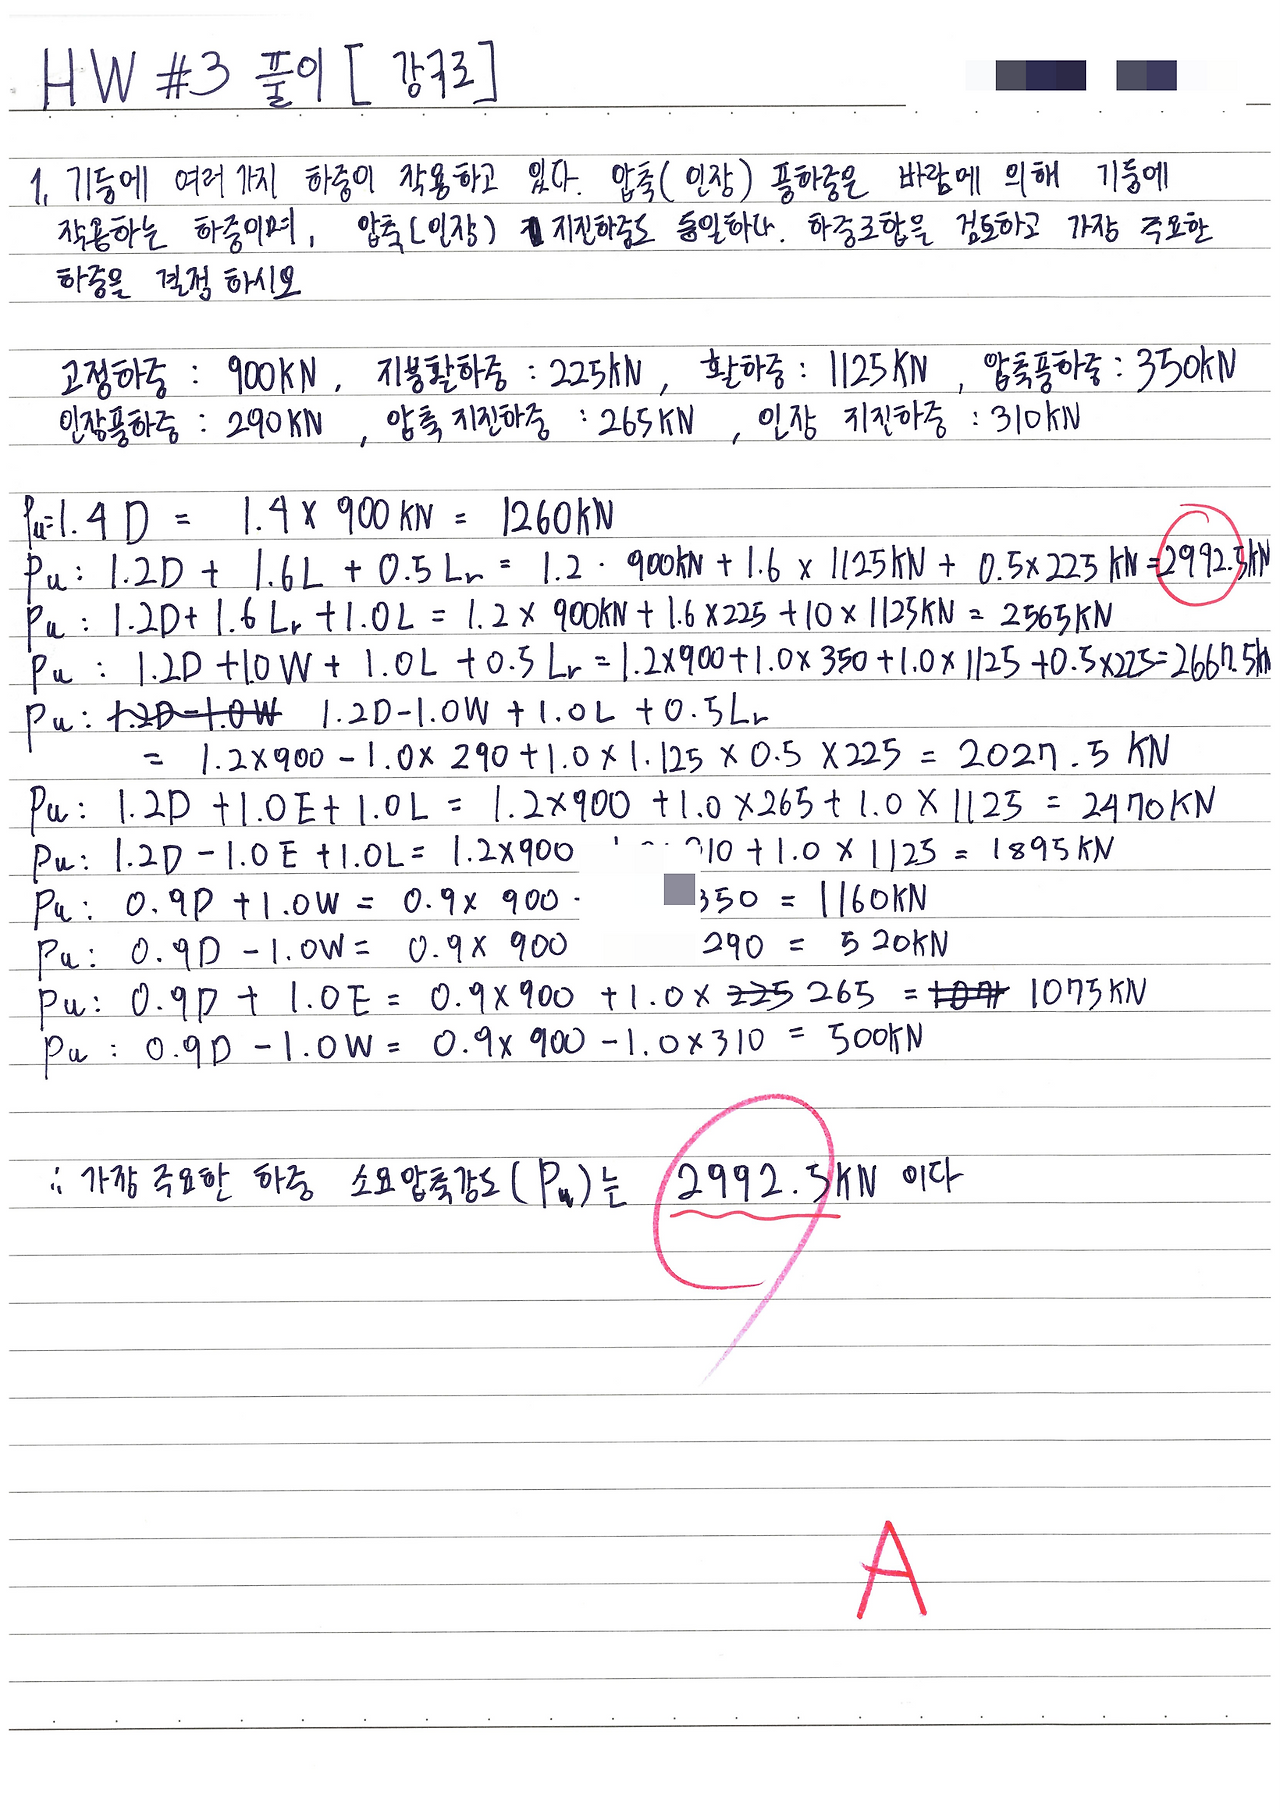 HW #3 풀이 [강구조]
1. 기둥에 여러가지 하중이 작용하고 있다. 압축(인장) 풍하중은 바람에 의해 기둥에
작용하는 하중이며, 압축(인장) 지진하중도 동일하다. 하중조합을 검토하고 가장 주요한
하중을 결정 하시오
고정하중 : 900KN, 지붕활하중 : 225KN, 활하중 : 1125KN, 압축풍하중 : 350KN
인장풍하중 : 290KN, 압축 지진하중 : 265KN, 인장 지진하중 : 310KN
Pu=1.4D = 1.4 × 900KN = 1260KN
Pu : 1.2D + 1.6L + 0.5Lr = 1.2 · 900KN + 1.6 × 1125KN + 0.5×225KN = 2992.5KN
Pu : 1.2D + 1.6Lr + 1.0L = 1.2 × 900KN + 1.6 × 225 + 10 × 1125KN = 2565KN
Pu : 1.2D + 1.0W + 1.0L + 0.5Lr = 1.2×900+1.0×350+1.0×1125+0.5×225=2667.5KN
Pu : 1.2D-1.0W 1.2D-1.0W + 1.0L + 0.5Lr
= 1.2×900 - 1.0× 290 + 1.0 × 1.125 × 0.5 × 225 = 2027.5 KN
Pu : 1.2D + 1.0E + 1.0L = 1.2×900 + 1.0 × 265 + 1.0 × 1125 = 2470KN
Pu : 1.2D - 1.0E + 1.0L = 1.2×900 310 + 1.0 × 1125 = 1895KN
Pu : 0.9D + 1.0W = 0.9× 900 350 = 1160KN
Pu : 0.9D - 1.0W = 0.9× 900 290 = 520KN
Pu : 0.9D + 1.0E = 0.9×900 + 1.0× 225 265 = 1075KN
Pu : 0.9D - 1.0W = 0.9× 900 - 1.0×310 = 500KN
∴ 가장 주요한 하중 소요압축강도(Pu)는 2992.5KN 이다
A